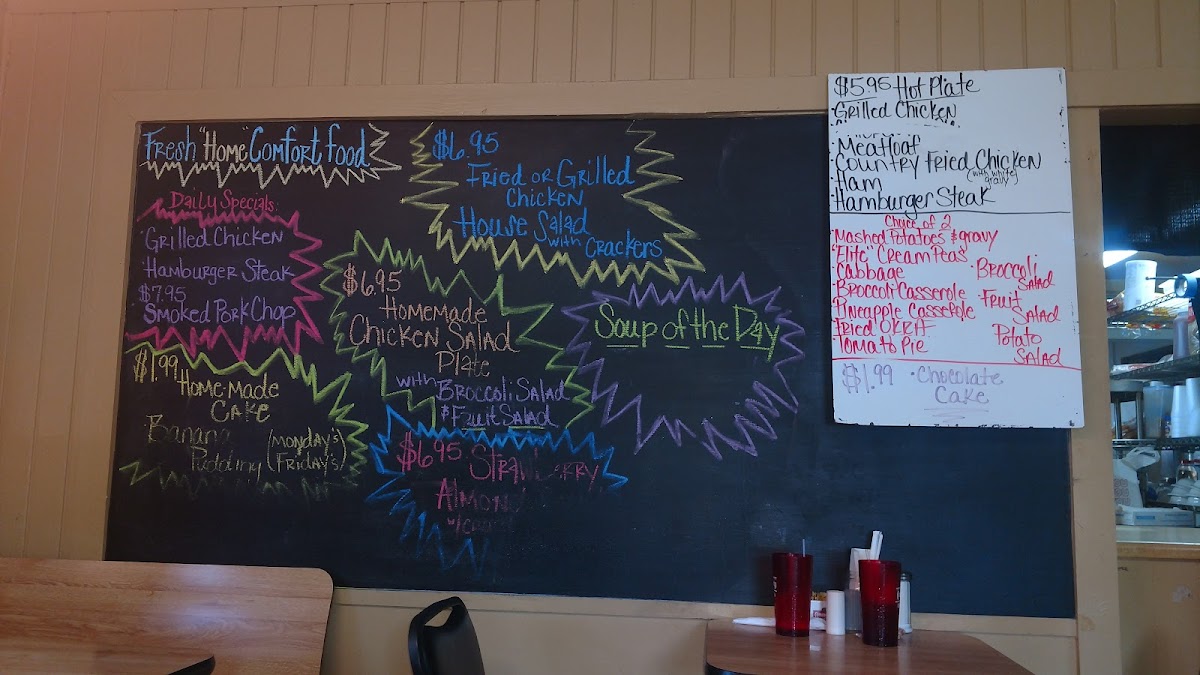 Fresh "Home" Comfort food
Daily Specials:
Grilled Chicken
Hamburger Steak
$7.95
Smoked Pork Chop
$1.99 Home-made
Cake
Banana
Pudding
(Monday's
Friday's)
$6.95
Fried or Grilled
Chicken
House Salad
with Crackers
$6.95
Homemade
Chicken Salad
Plate
with Broccoli Salad
& Fruit Salad
$6.95 Strawberry
Almond
Soup of the Day
$5.95 Hot Plate
·Grilled Chicken
·Meatloaf
·Country Fried Chicken
(with white
gravy)
·Ham
·Hamburger Steak
Choice of 2
·Mashed Potatoes & gravy
·"Elite" Cream Peas
·Cabbage
·Broccoli Casserole
·Pineapple Casserole
·Fried Okra
·Tomato Pie
·Broccoli
Salad
·Fruit
Salad
Potato
Salad
$1.99 ·Chocolate
Cake